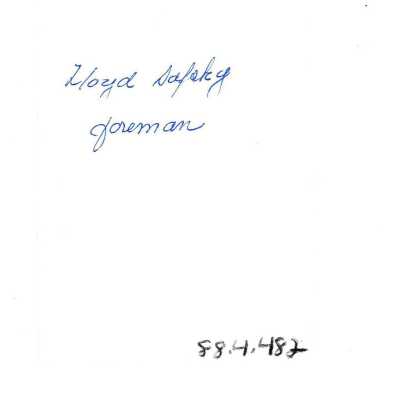 Lloyd
foreman
88.4.482